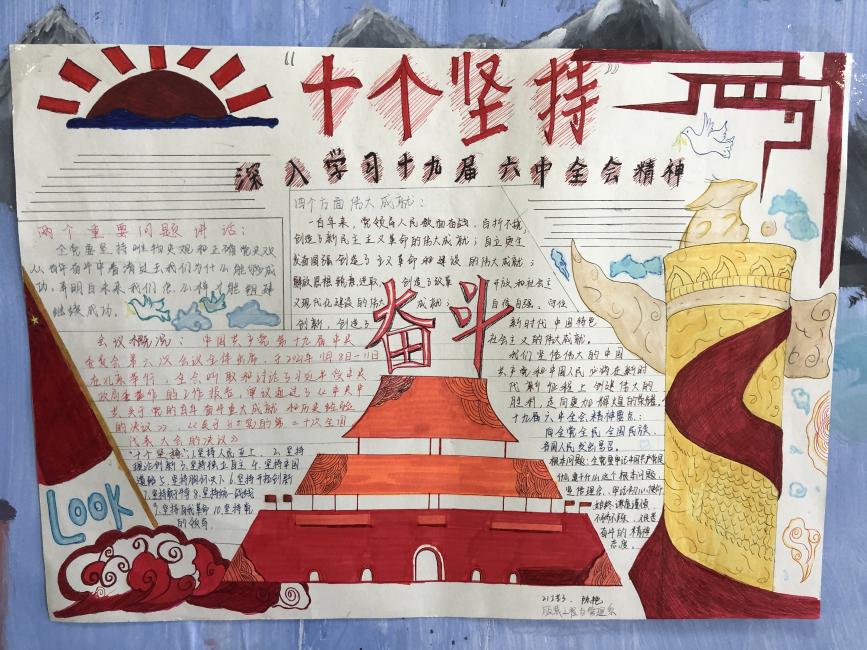 “十个坚持”
深入学习十九届六中全会精神
两个重要问题讲话：
全党要坚持唯物史观和正确党史观
从百年奋斗中看清过去我们为什么能够成
功，弄明白未来我们怎么样才能继续
继续成功。
四个方面伟大成就：
一百年来，党领导人民浴血奋战、百折不挠，
创造了新民主主义革命的伟大成就；自立更生
发奋图强，创造了主义革命和建设的伟大成就；
解放思想、锐意进取， 创造了改革 开放和社会主
义现代化建设的伟大 成就； 自信自强、守正
创新，创造了 新时代中国特色
社会主义的伟大成就。
奋斗
会议概况：中国共产党第十九届中央
委员会第六次会议全体出席，于2021年11月8日-11日
在北京举行，全会听取和讨论了习近平受中央
政局委托作的工作报告，审议通过了《中共中
央关于党的百年奋斗重大成就和历史经验
的决议》、《关于召开党的第二十次全国
代表大会的决议》
“十个坚持”：1.坚持人民至上、2.坚持
理论创新 3.坚持独立自主 4.坚持中国
道路 5.坚持胸怀天下 6.坚持开拓创新
7.坚持敢于斗争 8.坚持统一战线
9.坚持自我革命 10.坚持党
的领导
我们坚信伟大的中国
共产党和中国人民必将在新时
代新征程上创建伟大的
胜利，走向更加辉煌的荣耀。
十九届六中全会精神要点：
向全党全民全国民族、
各国人民发出号召。
根本问题：全党要牢记中国共产党是
什么要干什么这个根本问题，
始终谦虚谨慎
不骄不躁、艰苦
奋斗的精神
态度。
LOOK